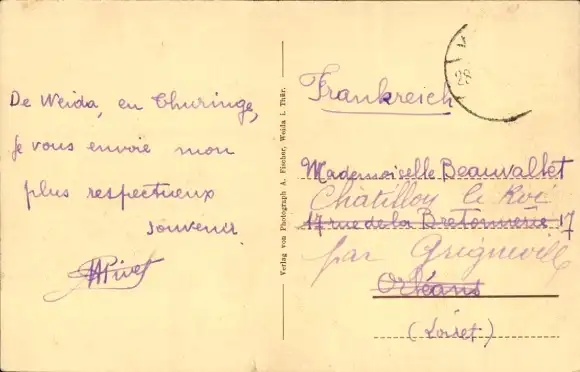 De Weida, en Thuringe,
je vous envoie mon
plus respectueux
souvenir
Verlag von Photograph A. Fischer, Weida i. Thür.
Frankreich
Mademoiselle Beauvallet
Châtillon le Roi
17 rue de la Bretonnerie 17
par Grigneville
Orléans
(Loiret)